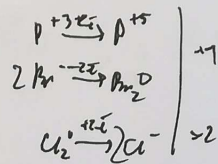 P⁺³ –2ē→ P⁺⁵
2Br⁻ –2ē→ Br₂⁰
Cl₂⁰ +2ē→ 2Cl⁻